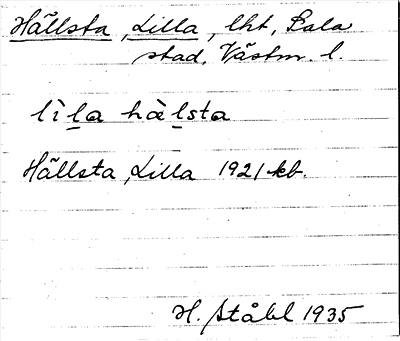 Hällsta, Lilla, lht, Sala
stad, Västm. l.
lìla hàlsta
Hällsta, Lilla 1921 kb.
H. Ståhl 1935